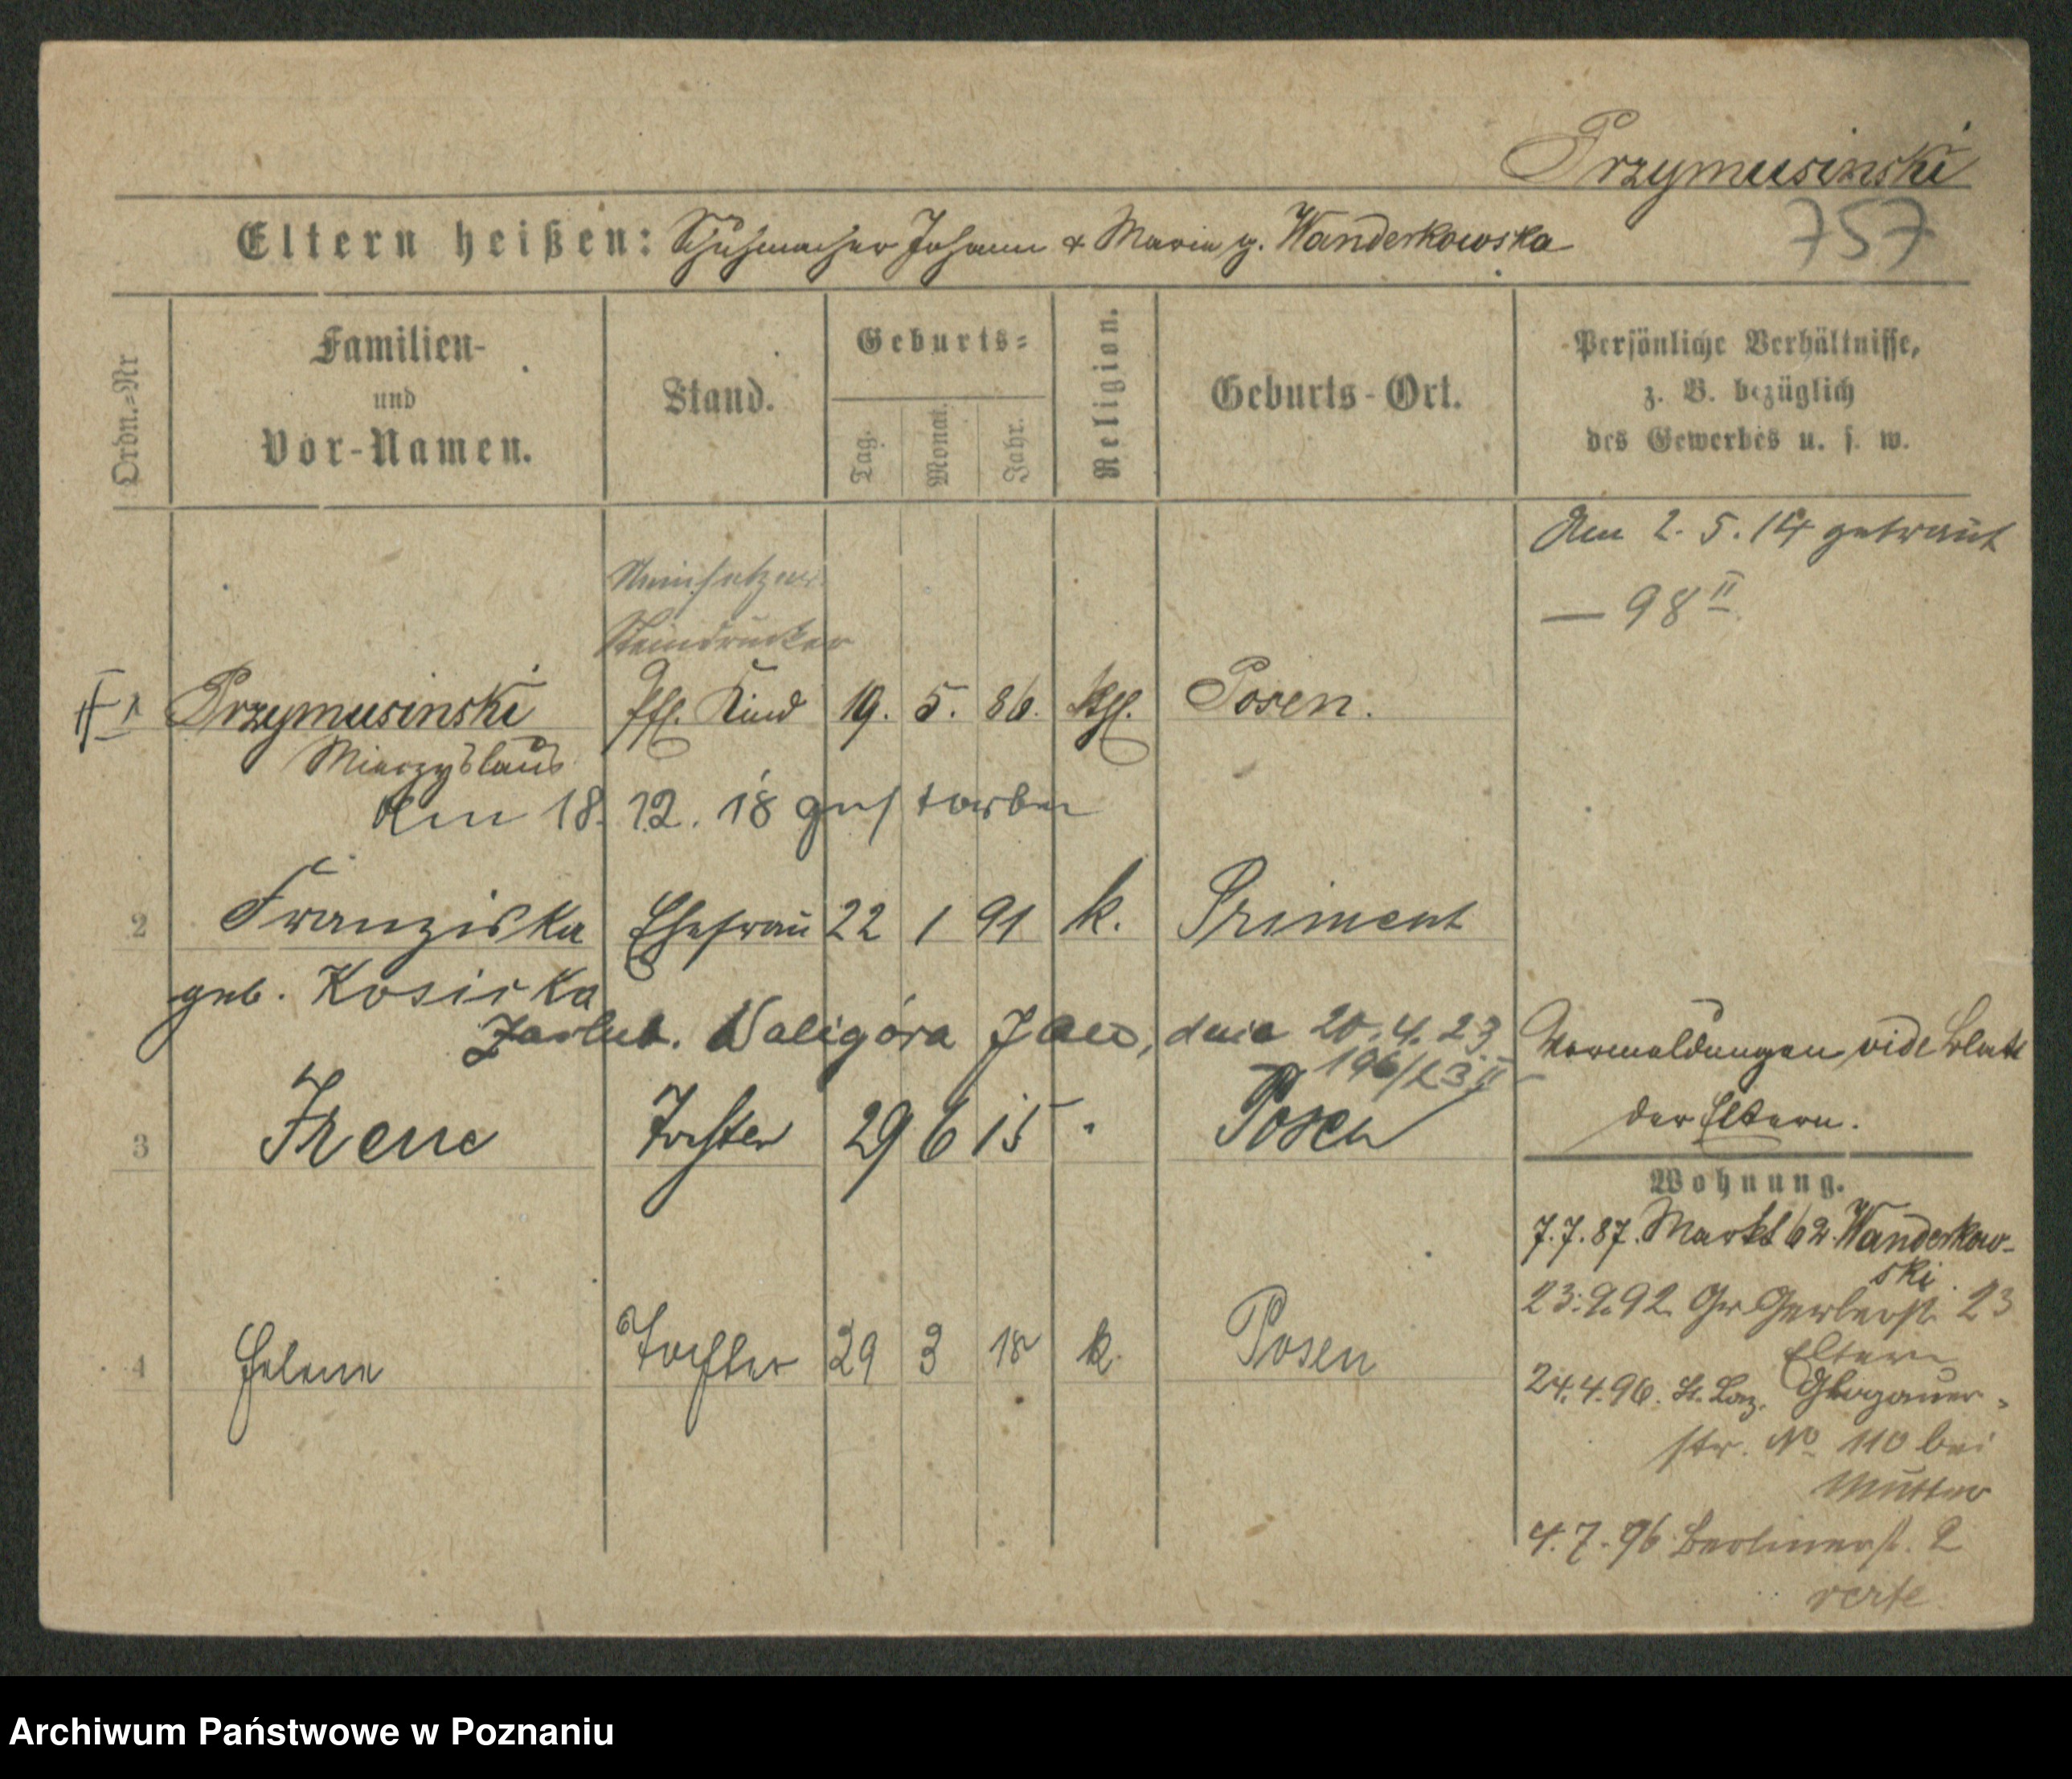 Przymusinski
Eltern heißen: Schuhmacher Johann & Maria g. Wanderkowska
757
Ordn.=Nr
Familien-
und
Vor-Namen.
Stand.
Geburts=
Tag.
Monat.
Jahr.
Religion.
Geburts-Ort.
Persönliche Verhältnisse,
z. B. bezüglich
des Gewerbes u. s. w.
Am 2. 5. 14 getraut
— 98 II
Steinsetzer
Steindrucker
1 Przymusinski Pfl. Kind 19. 5. 86. kth. Posen.
Mieczyslaus
Am 18. 12. 18 gestorben
2 Franziska Ehefrau 22 1 91 k. Priment
geb. Kosicka
Zaślub. Waligóra Jan, dnia 20.4.23
196/23 II
Vormeldungen vide Blatt
der Eltern.
3 Irene Tochter 29 6 15 " Posen
Wohnung.
7.7.87. Markt 62. Wanderkow-
ski.
23.9.92 Gr. Gerberst. 23
Eltern
4 Helene Tochter 29 3 18 k. Posen
24.4.96. St. Laz. Glogauer-
str. No 110 bei
Mutter
4.7.96 Berlinerst. 2
verte
Archiwum Państwowe w Poznaniu